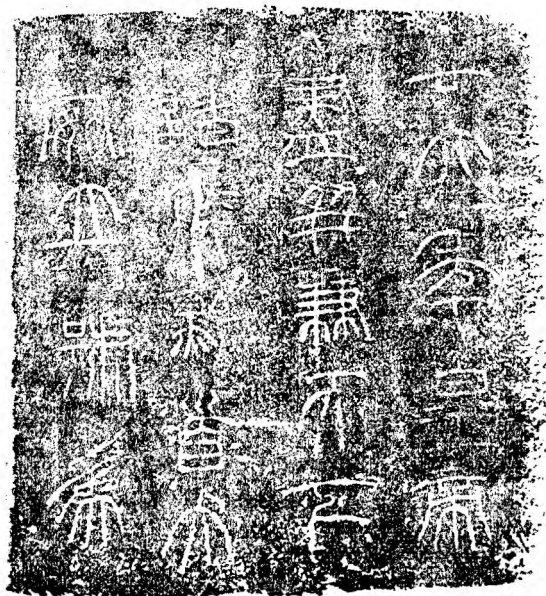 廿六年皇帝
盡并兼天下
諸侯黔首大
安立號為